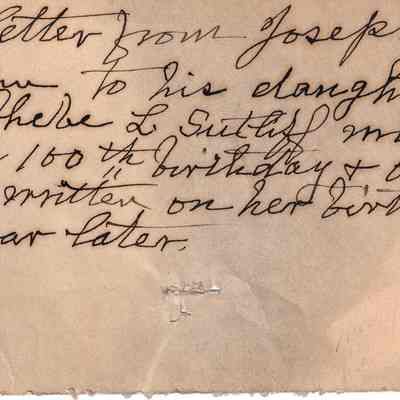 letter from Josep
to his daugh
hebe L Sutliff m
100th birthday + 
written on her birt
ar later.